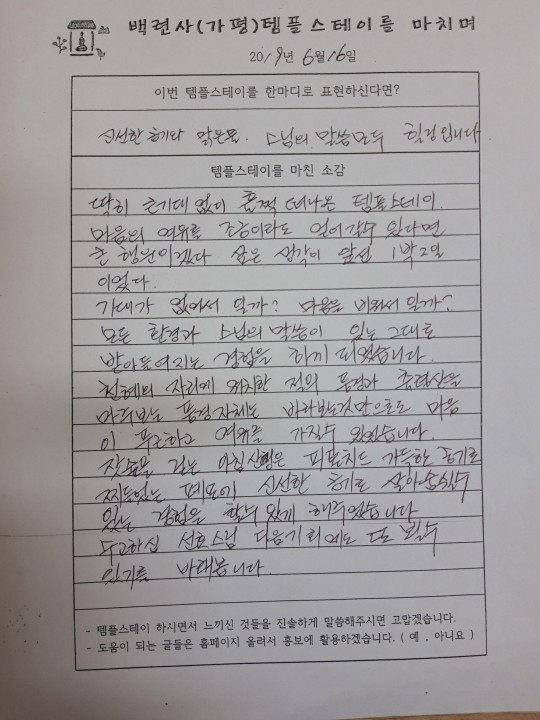 백련사(가평)템플스테이를 마치며
2019년 6월 16일
이번 템플스테이를 한마디로 표현하신다면?
신선한 공기와 맑은물. 스님의 말씀모두 힐링입니다
템플스테이를 마친 소감
딱히 큰기대 없이 훌쩍 떠나온 템플스테이.
마음의 여유를 조금이라도 얻어갈수 있다면
큰 행운이겠다 싶은 생각이 앞선 1박2일
이었다.
기대가 없어서 일까? 마음을 비워서 일까?
모든 환경과 스님의 말씀이 있는 그대로
받아들여지는 경험을 하게 되었습니다.
천혜의 자리에 위치한 절의 풍경과 축령산을
마주보는 풍경자체는 바라보는것만으로도 마음
이 푸근하고 여유를 가질수 있었습니다.
잣숲을 걷는 아침산행은 피톤치드 가득한 공기로
찌들었는 폐포이 신선한 공기로 살아숨쉴수
있는 경험을 할수 있게 해주었습니다
수고하신 선호스님 다음기회에도 또 뵐수
있기를 바래봅니다.
- 템플스테이 하시면서 느끼신 것들을 진솔하게 말씀해주시면 고맙겠습니다.
- 도움이 되는 글들은 홈페이지 올려서 홍보에 활용하겠습니다. ( 예 , 아니요 )